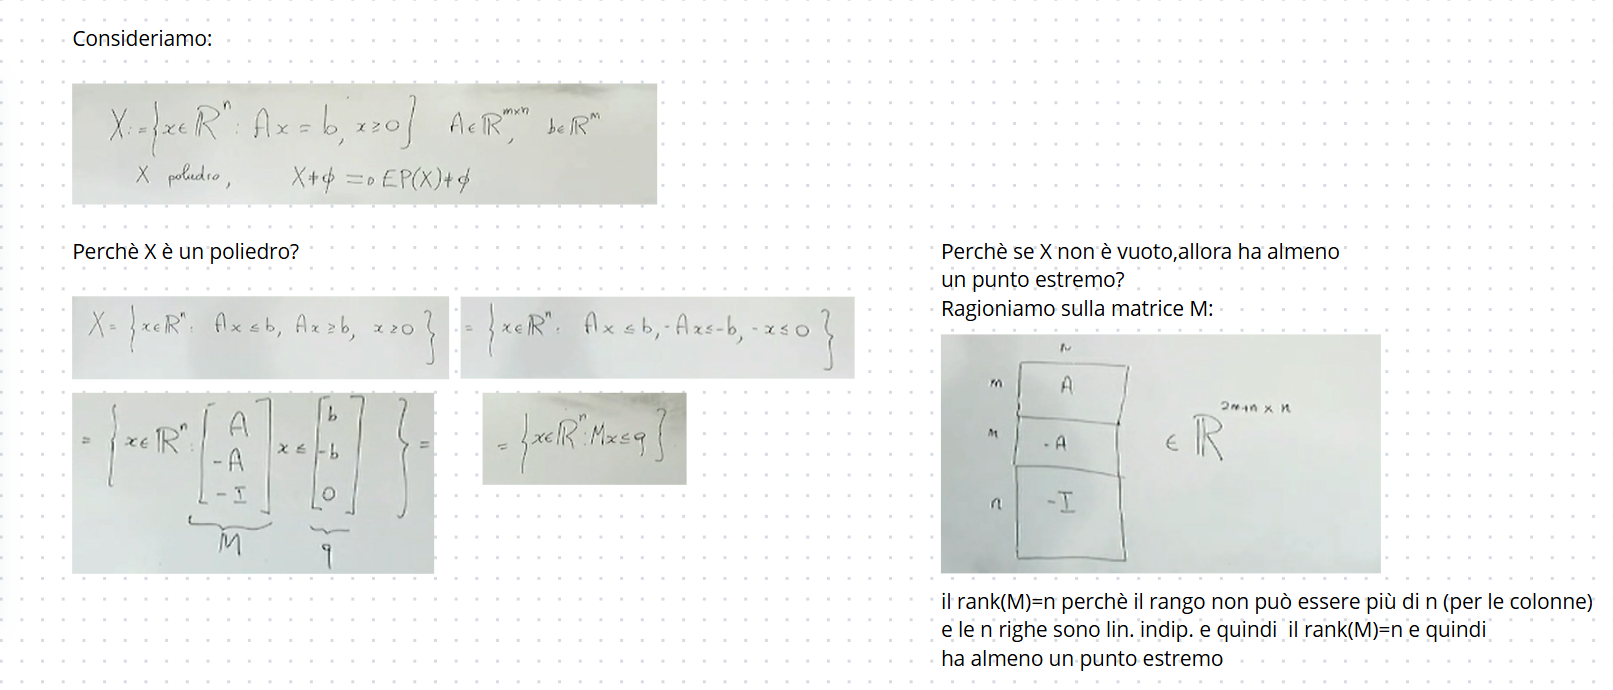 Consideriamo:
X:={x∈ℝⁿ: Ax=b, x≥0} A∈ℝᵐˣⁿ, b∈ℝᵐ
X poliedro, X≠∅ ⇒ EP(X)≠∅
Perchè X è un poliedro?
X={x∈ℝⁿ: Ax≤b, Ax≥b, x≥0}
={x∈ℝⁿ: Ax≤b, -Ax≤-b, -x≤0}
={x∈ℝⁿ: [A -A -I] x≤ [b -b 0]}=
M q
={x∈ℝⁿ: Mx≤q}
Perchè se X non è vuoto,allora ha almeno
un punto estremo?
Ragioniamo sulla matrice M:
n
m A
m -A ∈ℝ²ᵐ⁺ⁿ ˣ ⁿ
n -I
il rank(M)=n perchè il rango non può essere più di n (per le colonne)
e le n righe sono lin. indip. e quindi il rank(M)=n e quindi
ha almeno un punto estremo